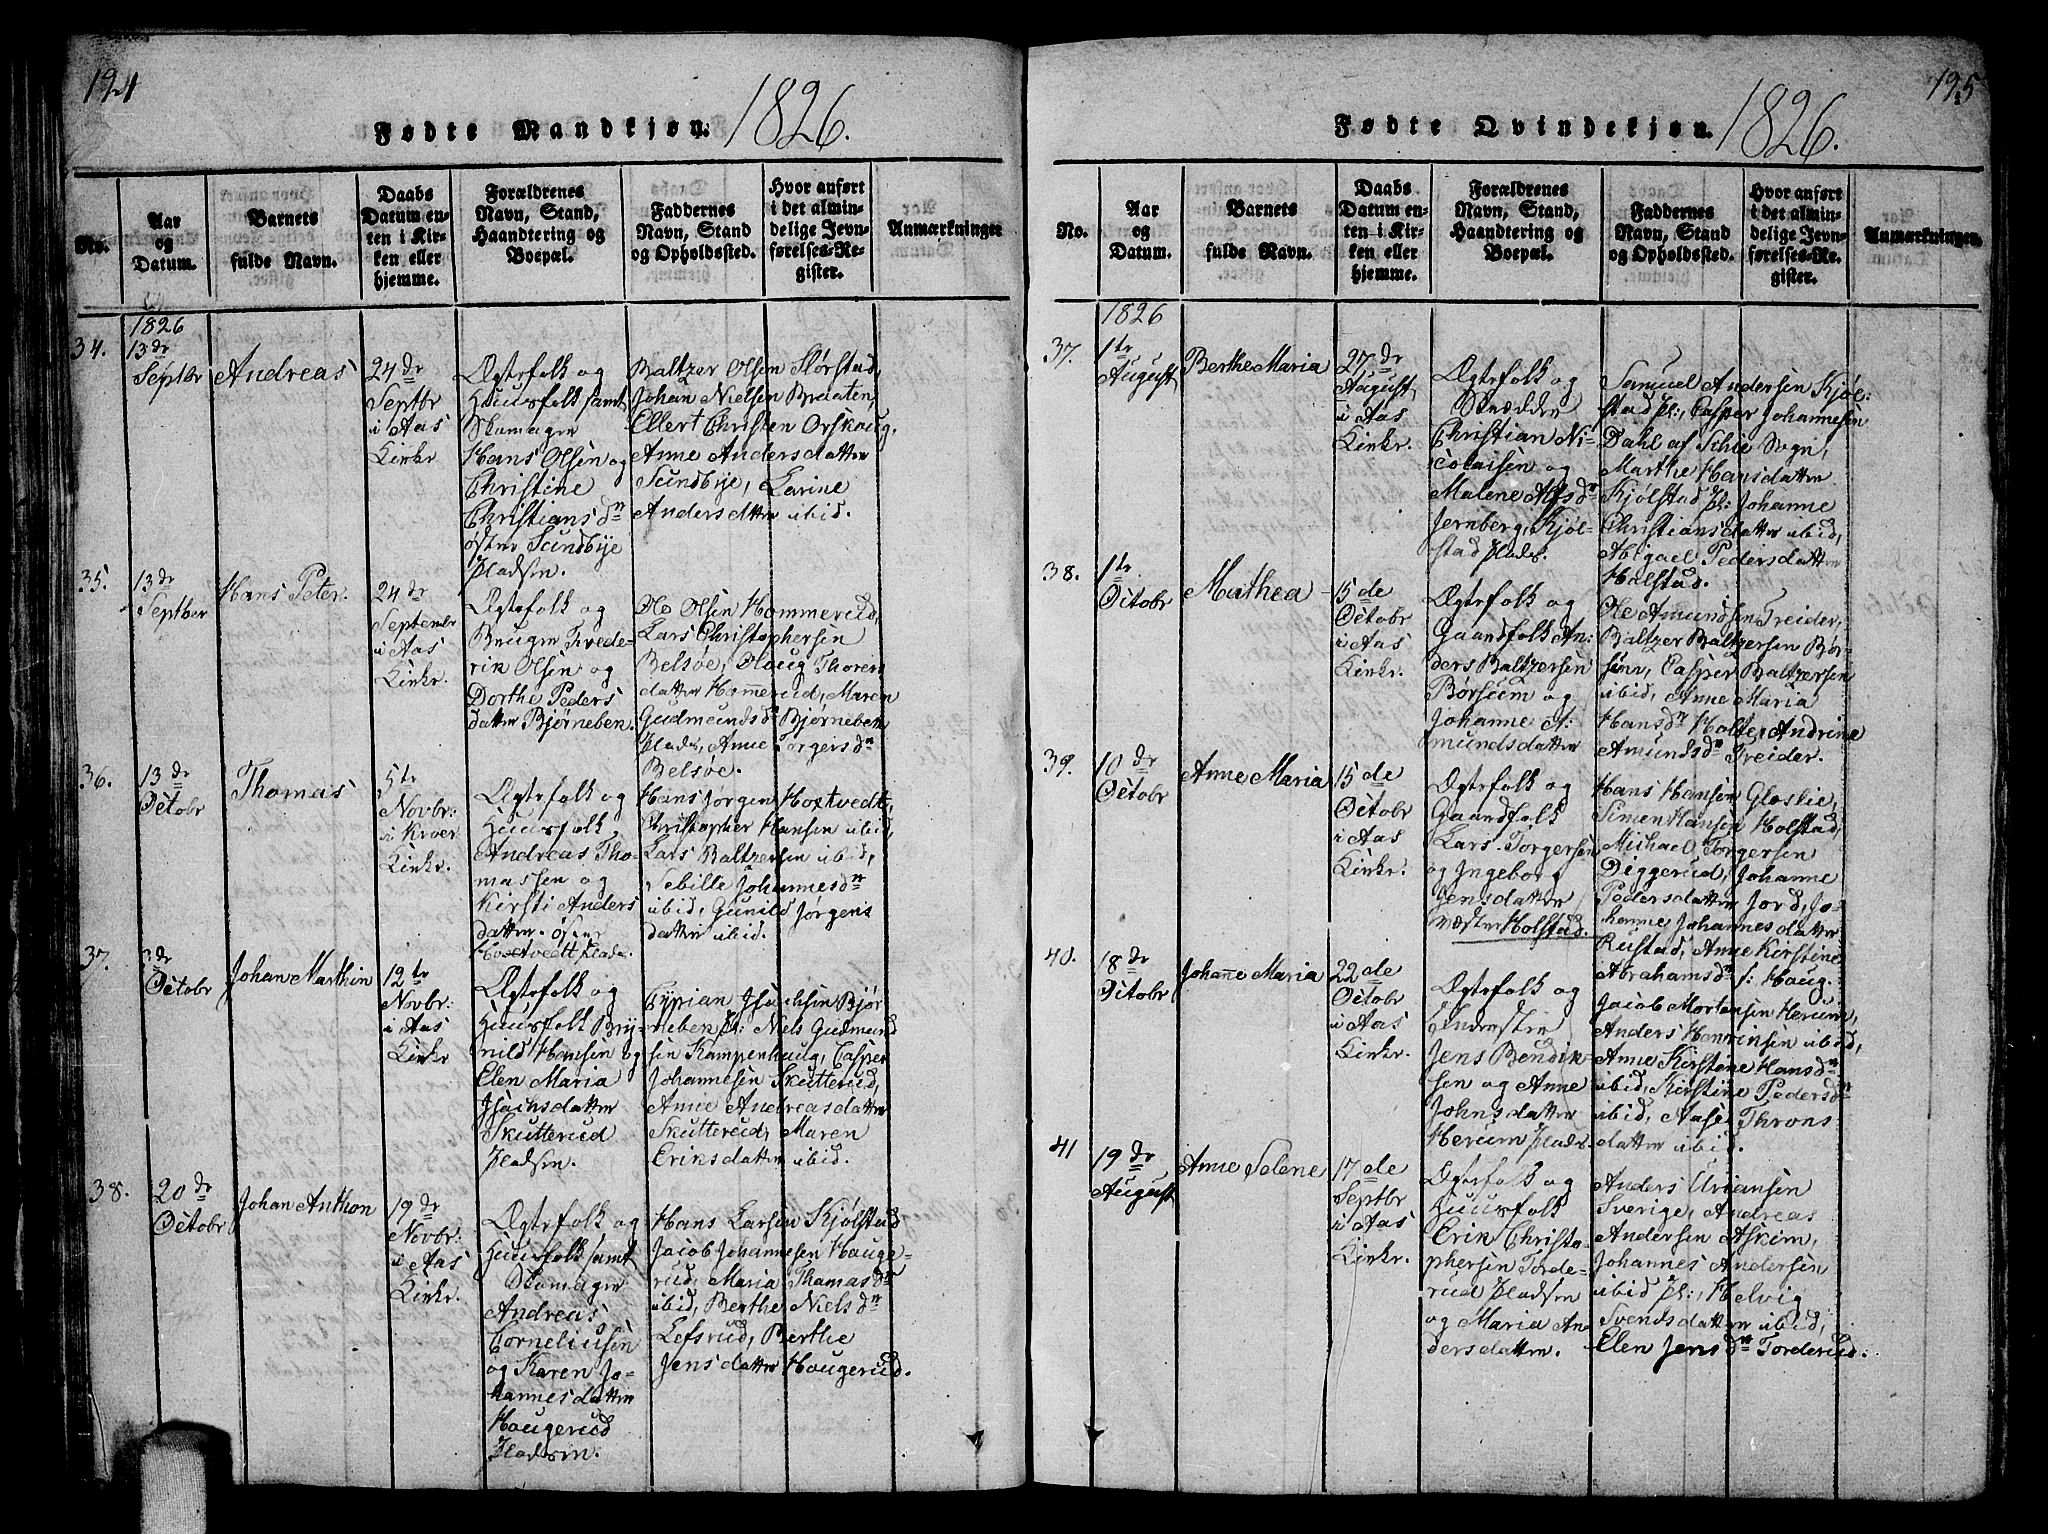 194
Fødte Mandkjøn. 1826.
No.
Aar
og
Datum.
Barnets
fulde Navn.
Daabs
Datum en-
ten i Kir-
ken eller
hjemme.
Forældrenes
Navn, Stand,
Haandtering og
Boepæl.
Faddernes
Navn, Stand
og Opholdssted.
Hvor anført
i det almin-
delige Jevn-
førelses-Re-
gister.
Anmærkninger
1826
34.
13de
Septbr
Andreas
24de
Septbr
i Aas
Kirke
Ægtefolk og
Huusfolk samt
Skomager
Hans Olsen og
Christine
Christiansdr
østre Sundbye
Pladsen.
Baltzer Olsen Slørstad,
Johan Nielsen Braaten,
Ellert Christen Orskoug.
Anne Andersdatter
Sundbye, Karine
Andersdatter ibid.
35.
13de
Septber
Hans Peter.
24de
Septembr
i Aas
Kirke.
Ægtefolk og
Bruger Frede-
rik Olsen og
Dorthe Peders
datter Bjørneben.
Ole Olsen Hommerud,
Lars Christophersen
Belsøe, Olaug Thores
datter Hom̄erud, Maren
Gudmundsdr Bjørneben
Plads, Anne Torgersdr
Belsøe.
36.
13de
Octobr
Thomas
5te
Novbr:
i Kroer
Kirke.
Ægtefolk og
Huusfolk
Andreas Tho-
massen og
Kirsti Anders
datter. øster
Hoxtvedt Plads.
Hans Jørgen Hoxtvedt,
Christopher Hansen ibid,
Lars Baltzersen ibid,
Sebille Johannesdr
ibid, Gunild Jørgens
datter ibid.
37.
Octobr
Johan Marthin
12te
Novbr:
i Aas
Kirke
Ægtefolk og
Huusfolk Bry-
nild Hansen og
Elen Maria
Isachsdatter
Skutterud
Pladsen.
Cyprian Isachsen Bjør-
neben Pl: Niels Gudmund
sen Kampenhaug, Casper
Johannesen Skutterud,
Anne Andreasdatter
Skutterud, Maren
Eriksdatter ibid.
38.
20de
Octobr
Johan Anthon
19de
Novbr:
i Aas
Kirke.
Ægtefolk og
Huusfolk samt
Skomager
Andreas
Corneliusen
og Karen Jo-
hannesdatter
Haugerud
Pladsen.
Hans Larsen Kjølstad
Jacob Johannesen Hauge-
rud, Maria Thomasdr
ibid, Berthe Nielsdr
Lefsrud, Berthe
Jensdatter Haugerud.
195
Fødte Qvindekjøn. 1826.
No.
Aar
og
Datum.
Barnets
fulde Navn.
Daabs
Datum en-
ten i Kir-
ken eller
hjemme.
Forældrenes
Navn, Stand,
Haandtering og
Boepæl.
Faddernes
Navn, Stand
og Opholdssted.
Hvor anført
i det almin-
delige Jevn-
førelses-Re-
gister.
Anmærkninger.
1826
37.
1te
August
Berthe Maria
27de
August
i Aas
Kirke.
Ægtefolk og
Skrædder
Christian Ni-
colaisen og
Malene Alfsdr
Jernberg, Kjøl-
stad Plads.
Samuel Andersen Kjøl-
stad Pl:, Casper Johannesen
Dahl af Schie Sogn,
Marthe Hansdatter
Kjølstad Pl: Johanne
Christiansdatter ibid,
Abigael Pedersdatter
Holstad.
38.
1te
Octobr
Mathea
15de
Octobr
i Aas
Kirke.
Ægtefolk og
Gaardfolk An-
ders Baltzersen
Børsum og
Johanne A-
mundsdatter
Ole Amundsen Treider,
Baltzer Baltzersen Bør-
sum, Casper Baltzersen
ibid, Anne Maria
Hansdr Holte, Andrine
Amundsdr Treider.
39.
10de
Octobr
Anne Maria
15de
Octobr
i Aas
Kirke.
Ægtefolk og
Gaardfolk
Lars Torgersen
og Ingeborg
Jensdatter
væster Holstad.
Hans Hansen Gloslie,
Simen Hansen Holstad,
Michael Torgersen
Diggerud, Johanne
Pedersdatter Jord, Jo-
hanne Johannesdatter
Rustad, Anne Kirstine
Abrahamsdr /: Haug.
40.
18de
Octobr
Johan̄e Maria
22de
Octobr
i Aas
Kirke.
Ægtefolk og
Inderster
Jens Bendik-
sen og Anne
Johnsdatter
Herum Plads.
Jacob Mortensen Herum,
Anders Henriksen ibid,
Anne Kirstine Hansdr
ibid, Kirstine Pedersdr
ibid, Aase Throns
datter ibid.
41
19de
August
Anne Selene
17de
Septbr
i Aas
Kirke.
Ægtefolk og
Huusfolk
Erik Christo-
phersen Torde-
rud Pladsen
og Maria An-
dersdatter.
Anders Uriansen
Sverige, Andreas
Andersen Askim,
Johannes Andersen
ibid Pl:, Helvig
Svendsdatter ibid,
Elen Jensdr Torderud.